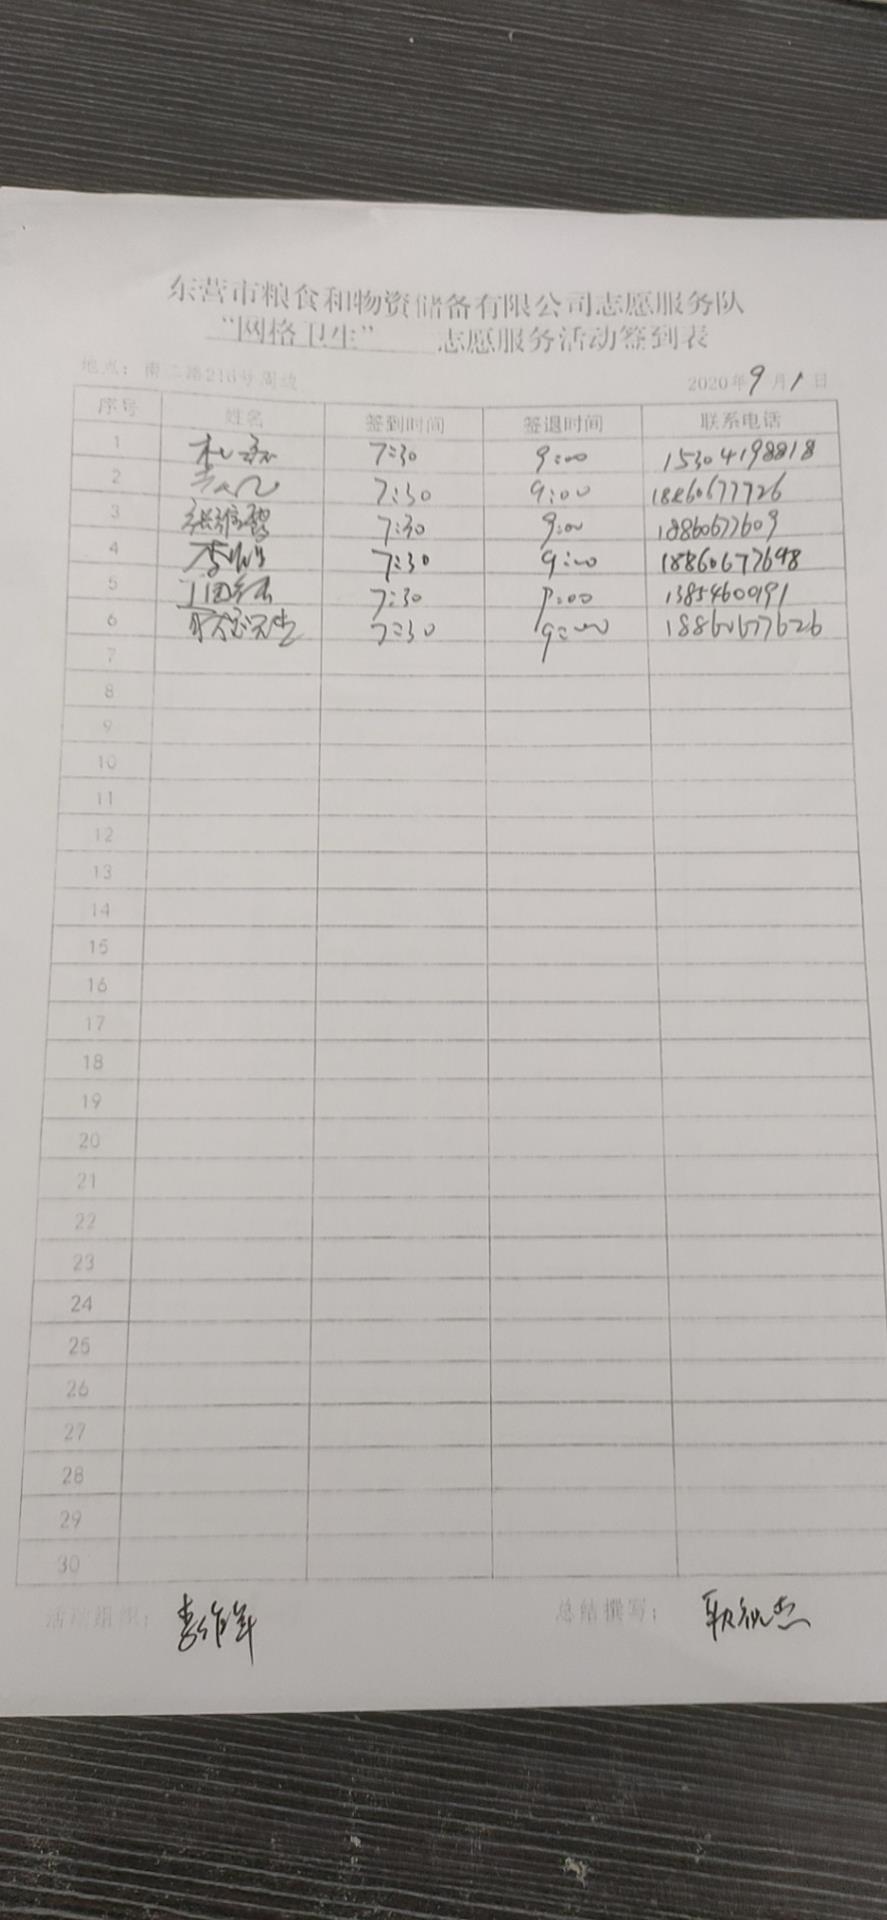 东营市粮食和物资储备有限公司志愿服务队
“网格卫生” 志愿服务活动签到表
地点：南二路216号周边 2020年9月1日
序号 姓名 签到时间 签退时间 联系电话
1 7:30 9:00 15304198818
2 7:30 9:00 18860677726
3 7:30 9:00 18860677609
4 7:30 9:00 18860677698
5 7:30 9:00 13854600191
6 7:30 9:00 18860677626
7
8
9
10
11
12
13
14
15
16
17
18
19
20
21
22
23
24
25
26
27
28
29
30
活动组织： 总结撰写：